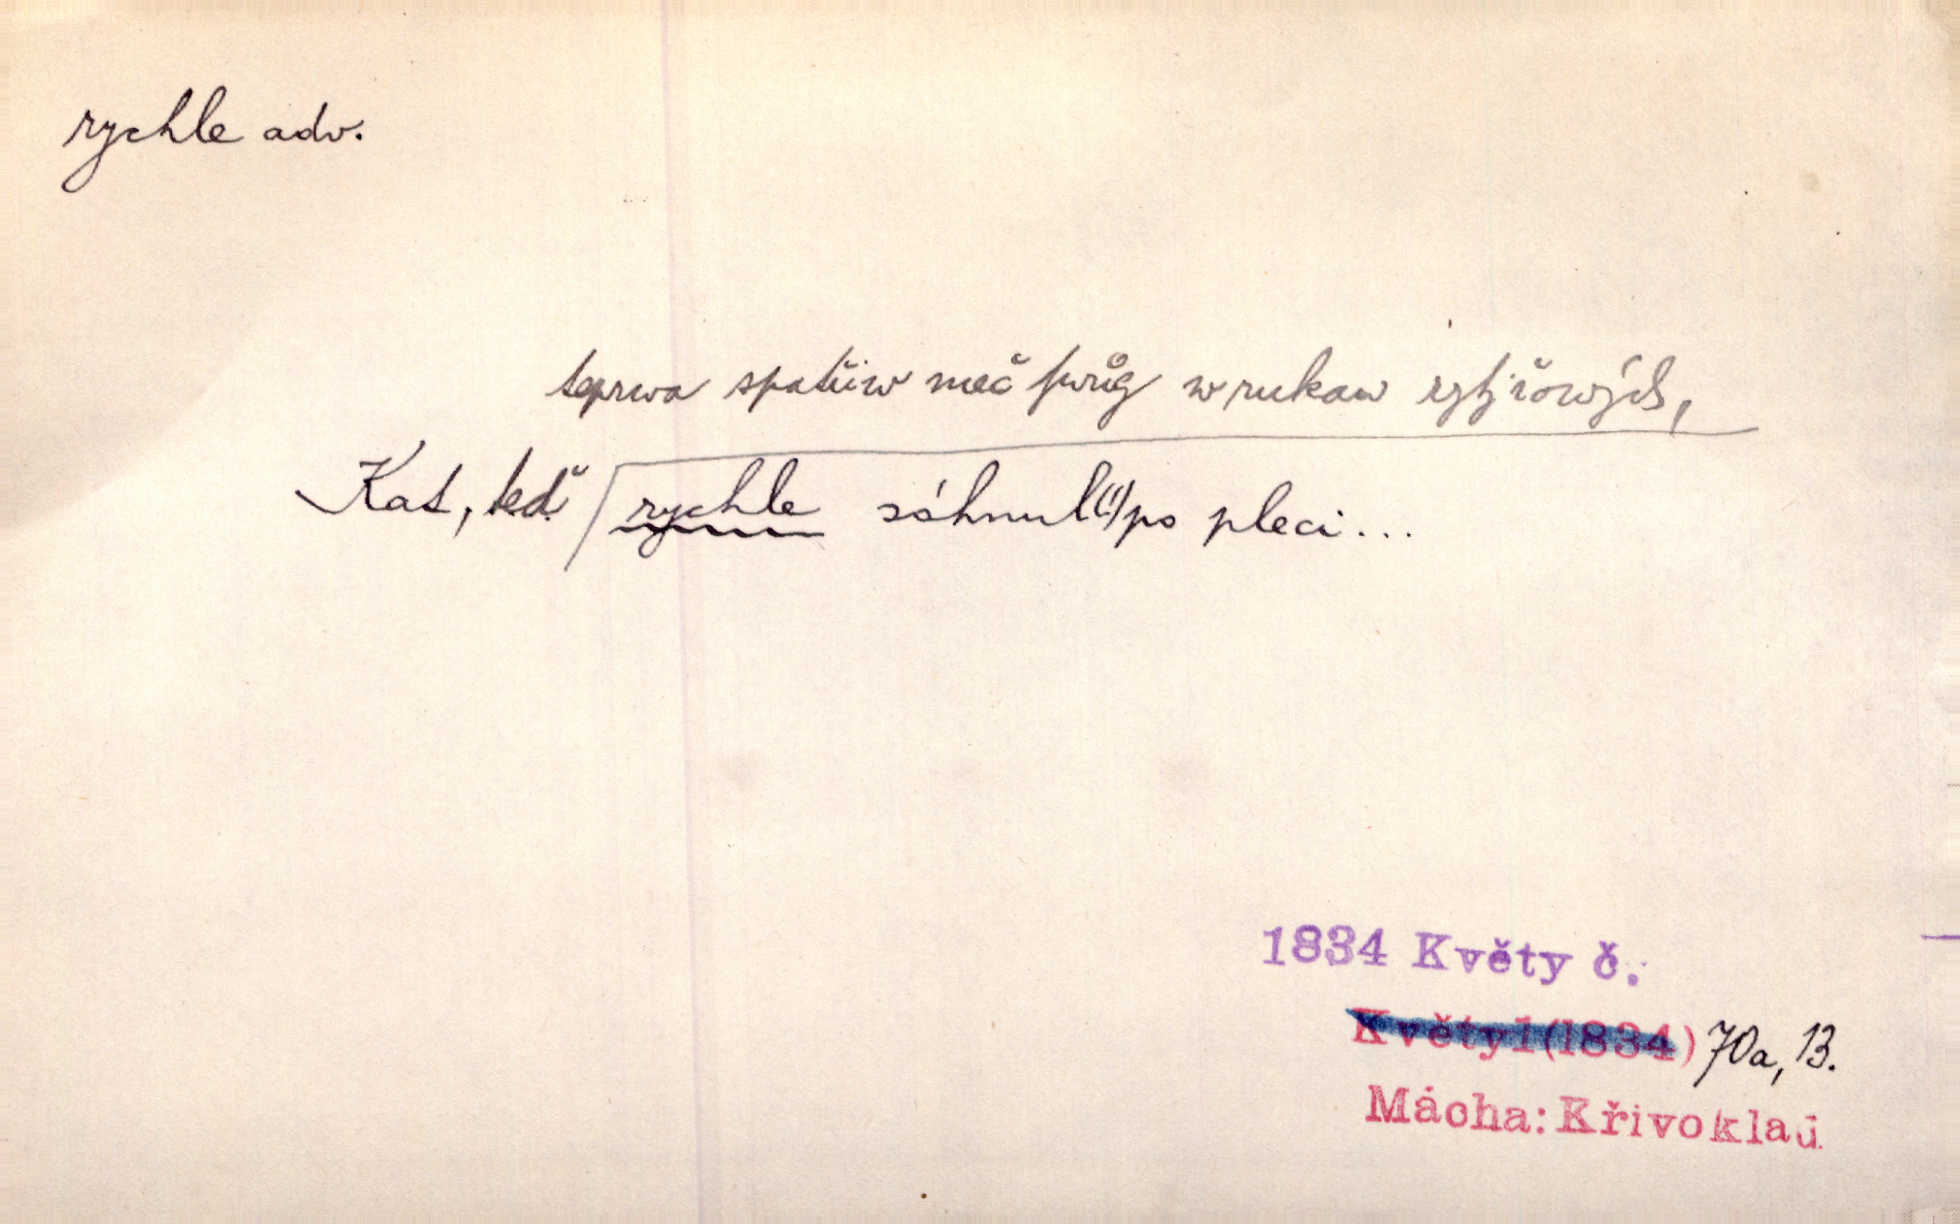 rychle adv.
teprwa spatřiw meč swůg w rukaw rytjřowých,
Kat, teď rychle sáhnul(!) po pleci...
1834 Květy č.
Květy1(1834) 70a, 13.
Mácha: Křivoklad